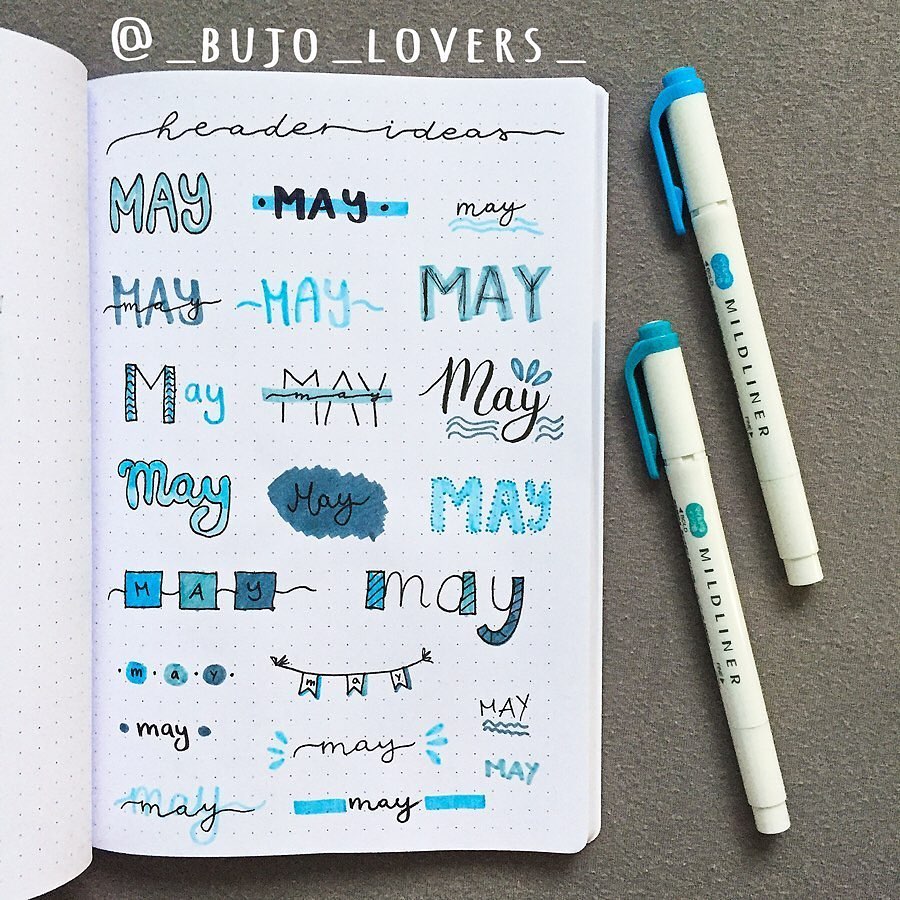 @_BUJO_LOVERS_
header ideas
MAY MAY may
MAY may MAY MAY
May MAY may May
May May MAY
MAY may
may may
MAY
may may
MAY
may may may
MILDLINER
MILDLINER